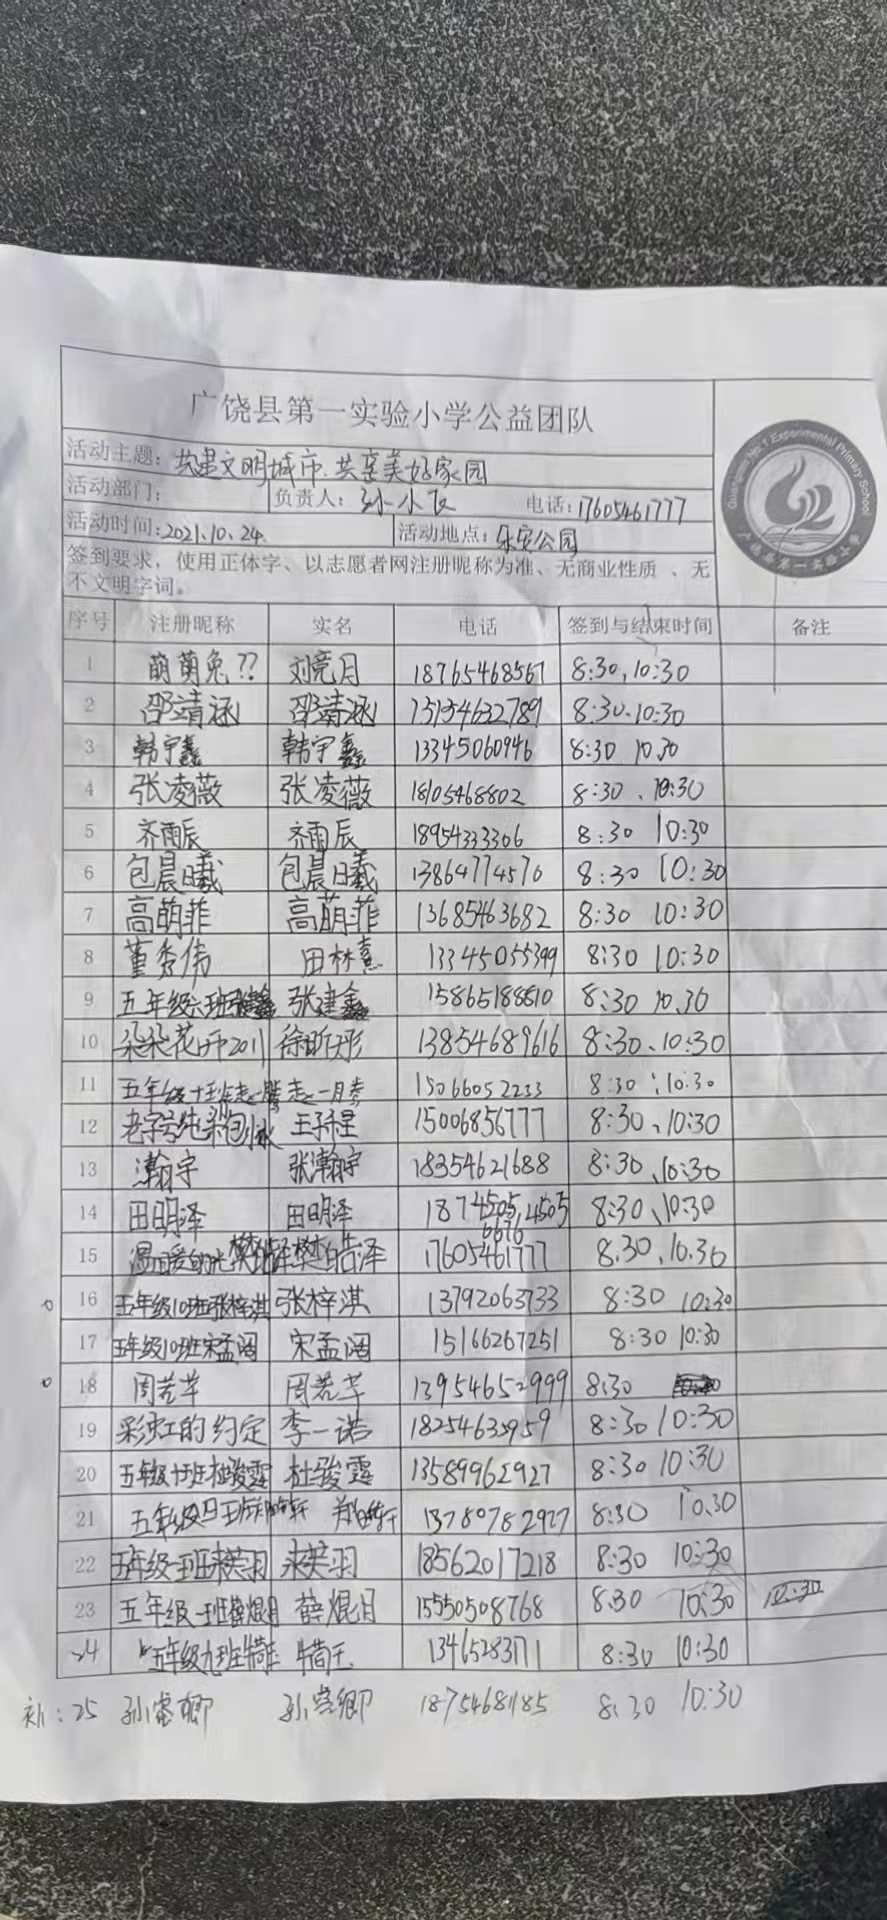 广饶县第一实验小学公益团队
Guangrao No.1 Experimental Primary School
活动主题: 共建文明城市.共享美好家园
活动部门: 负责人: 孙小 电话: 17605461777
活动时间: 2021.10.24 活动地点: 乐安公园
签到要求,使用正体字、以志愿者网注册昵称为准、无商业性质 、无
不文明字词。
序号 注册昵称 实名 电话 签到与结束时间 备注
1 萌萌兔?? 刘亮月 18765468567 8:30,10:30
2 邵靖涵 邵靖涵 8:30.10:30
3 韩宇鑫 韩宇鑫 13345060946 8:30 10.30
4 张凌薇 张凌薇 18105468802 8:30 、10:30
5 齐雨辰 齐雨辰 18954333306 8:30 10:30
6 包晨曦 包晨曦 13864774570 8:30 10:30
7 高萌菲 高萌菲 13685463682 8:30 10:30
8 董秀伟 田林熹 13345055399 8:30 10:30
9 五年级六班 张建鑫 15865188810 8:30 10.30
10 朵朵花开2011 徐昕彤 13854689616 8:30、10:30
11 五年级十班 15066052233 8:30 :10:30
12 老字号纯 15006856777 8:30、10:30
13 瀚宇 张瀚宇 18354621688 8:30、10:30
14 田明泽 田明泽 8:30、10:30
15 温暖的 樊皓泽 17605461777 8.30、10.30
16 五年级10班张梓淇 张梓淇 13792063733 8:30 10:30
17 五年级10班宋孟阔 宋孟阔 15166267251 8:30 10:30
18 周若芊 周若芊 13954652999 8:30
19 彩虹的约定 李一诺 8:30 10:30
20 五年级十班杜骏霆 杜骏霆 13589962927 8:30 10:30
21 五年级四班 13780782927 8:30 10.30
22 五年级一班 18562017218 8:30 10:30
23 五年级一班薛焜月 薛焜月 15550508768 8:30 10:30
24 五年级九班 13465283171 8:30 10:30
补:25 孙睿卿 孙睿卿 18754681185 8:30 10:30